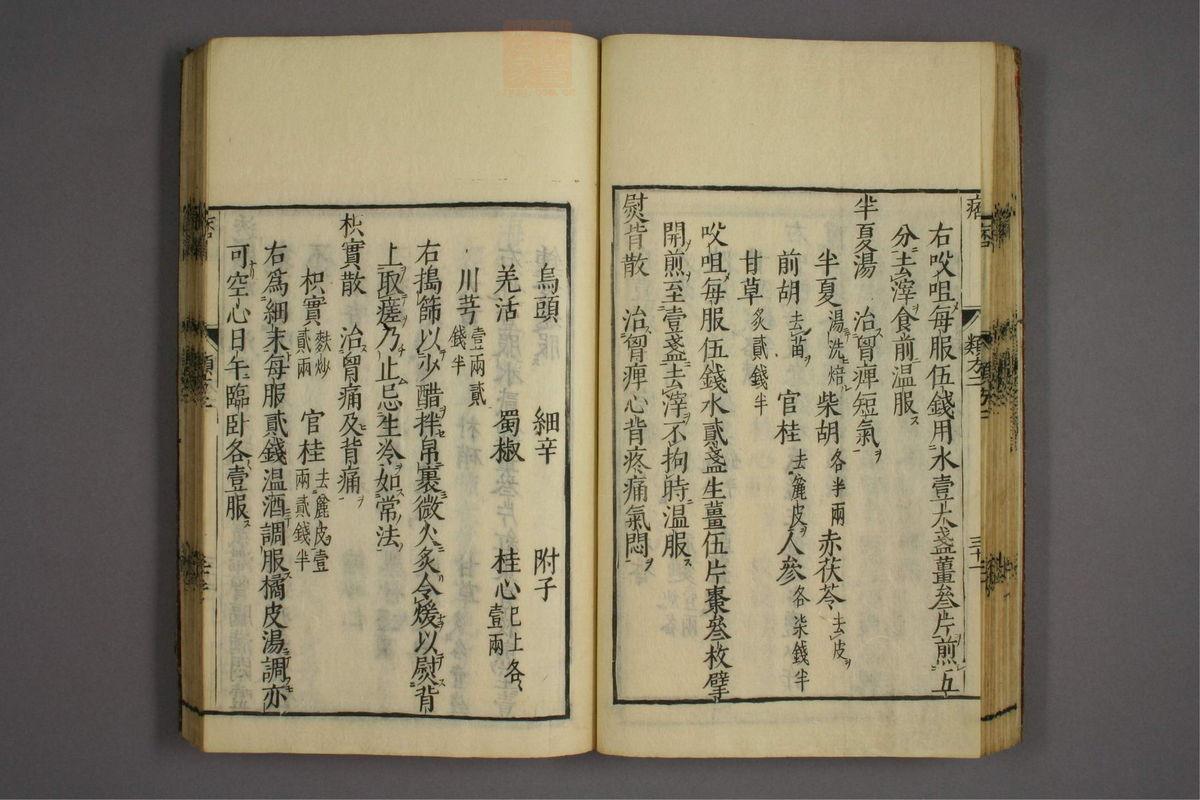 右㕮咀每服伍錢用水壹大盞薑叄片煎五
分去滓食前溫服
半夏湯 治胷痺短氣
半夏湯洗焙 柴胡各半兩 赤茯苓去皮
前胡去苗 官桂去麄皮 人參各柒錢半
甘草炙貳錢半
㕮咀每服伍錢水貳盞生薑伍片棗叄枚擘
開煎至壹盞去滓不拘時溫服
熨背散 治胷痺心背疼痛氣悶
烏頭 細辛 附子
羌活 蜀椒 桂心已上各壹兩
川芎壹兩貳錢半
右搗篩以少醋拌帛裹微火炙令煖以熨背
上取瘥乃止忌生冷如常法
枳實散 治胷痛及背痛
枳實麩炒貳兩 官桂去麄皮壹兩貳錢半
右爲細末每服貳錢溫酒調服橘皮湯調亦
可空心日午臨臥各壹服